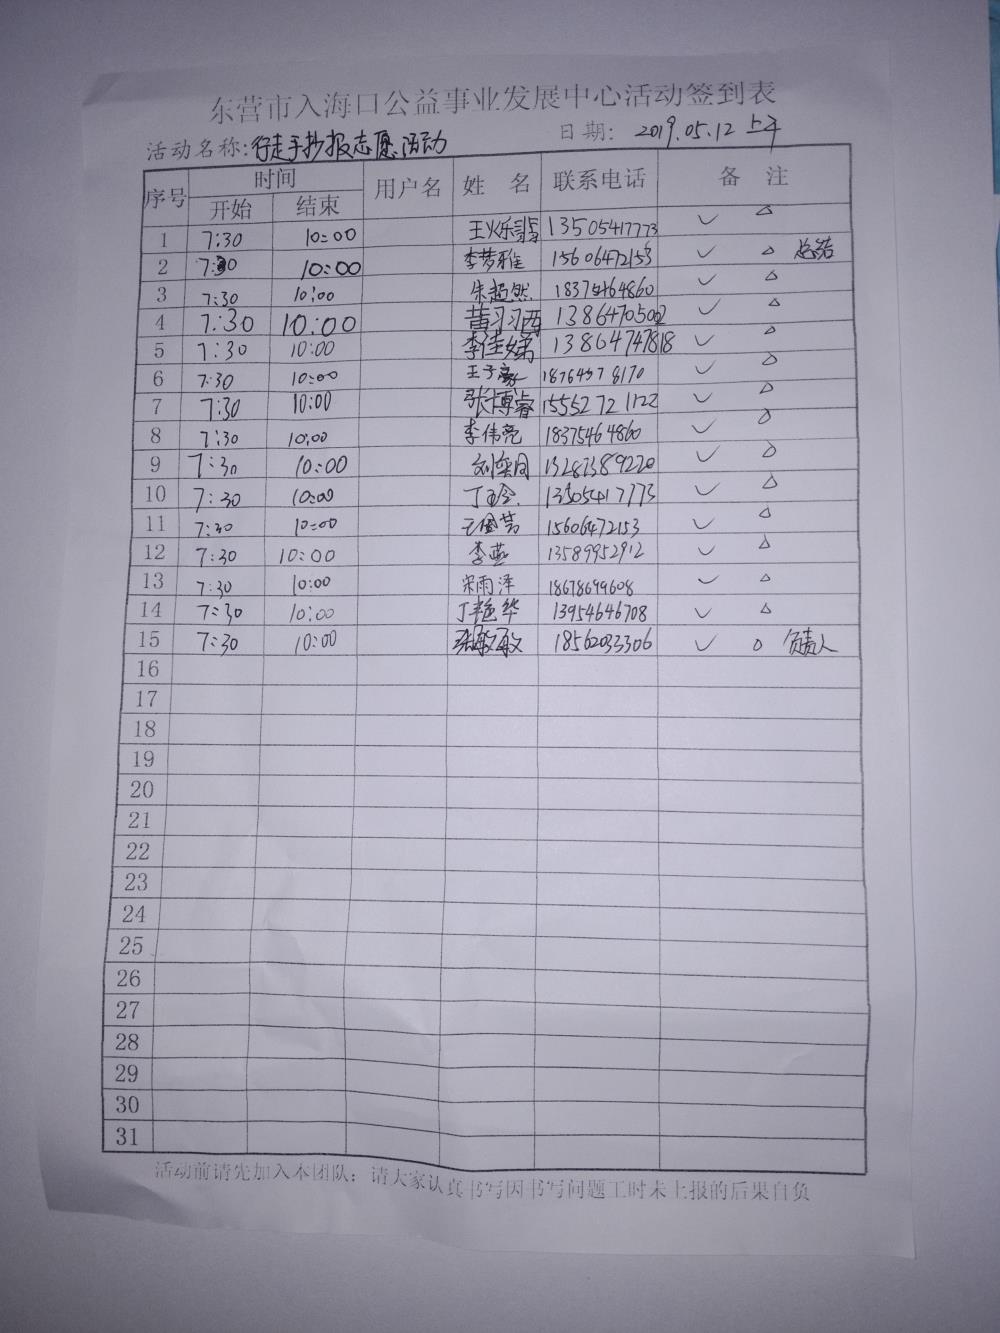 东营市入海口公益事业发展中心活动签到表
活动名称:行走手抄报志愿活动 日期: 2019.05.12 上午
序号 时间 用户名 姓 名 联系电话 备 注
开始 结束
1 7:30 10:00 王烁翡 13505417773 ✓ △
2 7:30 10:00 李梦雅 15606472153 ✓ △ 总结
3 7:30 10:00 朱超然 18375464860 ✓ △
4 7:30 10:00 黄习习西 13864705002 ✓ △
5 7:30 10:00 李佳娣 13864747818 ✓ △
6 7:30 10:00 王子豪 18764378170 ✓ △
7 7:30 10:00 张博睿 15552721122 ✓ △
8 7:30 10:00 李伟亮 18375464860 ✓ △
9 7:30 10:00 刘奕同 13287389220 ✓ △
10 7:30 10:00 丁 13505417773 ✓ △
11 7:30 10:00 15606472153 ✓ △
12 7:30 10:00 李燕 13589952912 ✓ △
13 7:30 10:00 宋雨泽 18678699608 ✓ △
14 7:30 10:00 丁艳华 13954646708 ✓ △
15 7:30 10:00 张敏敏 18562033306 ✓ △ 负责人
16
17
18
19
20
21
22
23
24
25
26
27
28
29
30
31
活动前请先加入本团队；请大家认真书写因书写问题工时未上报的后果自负